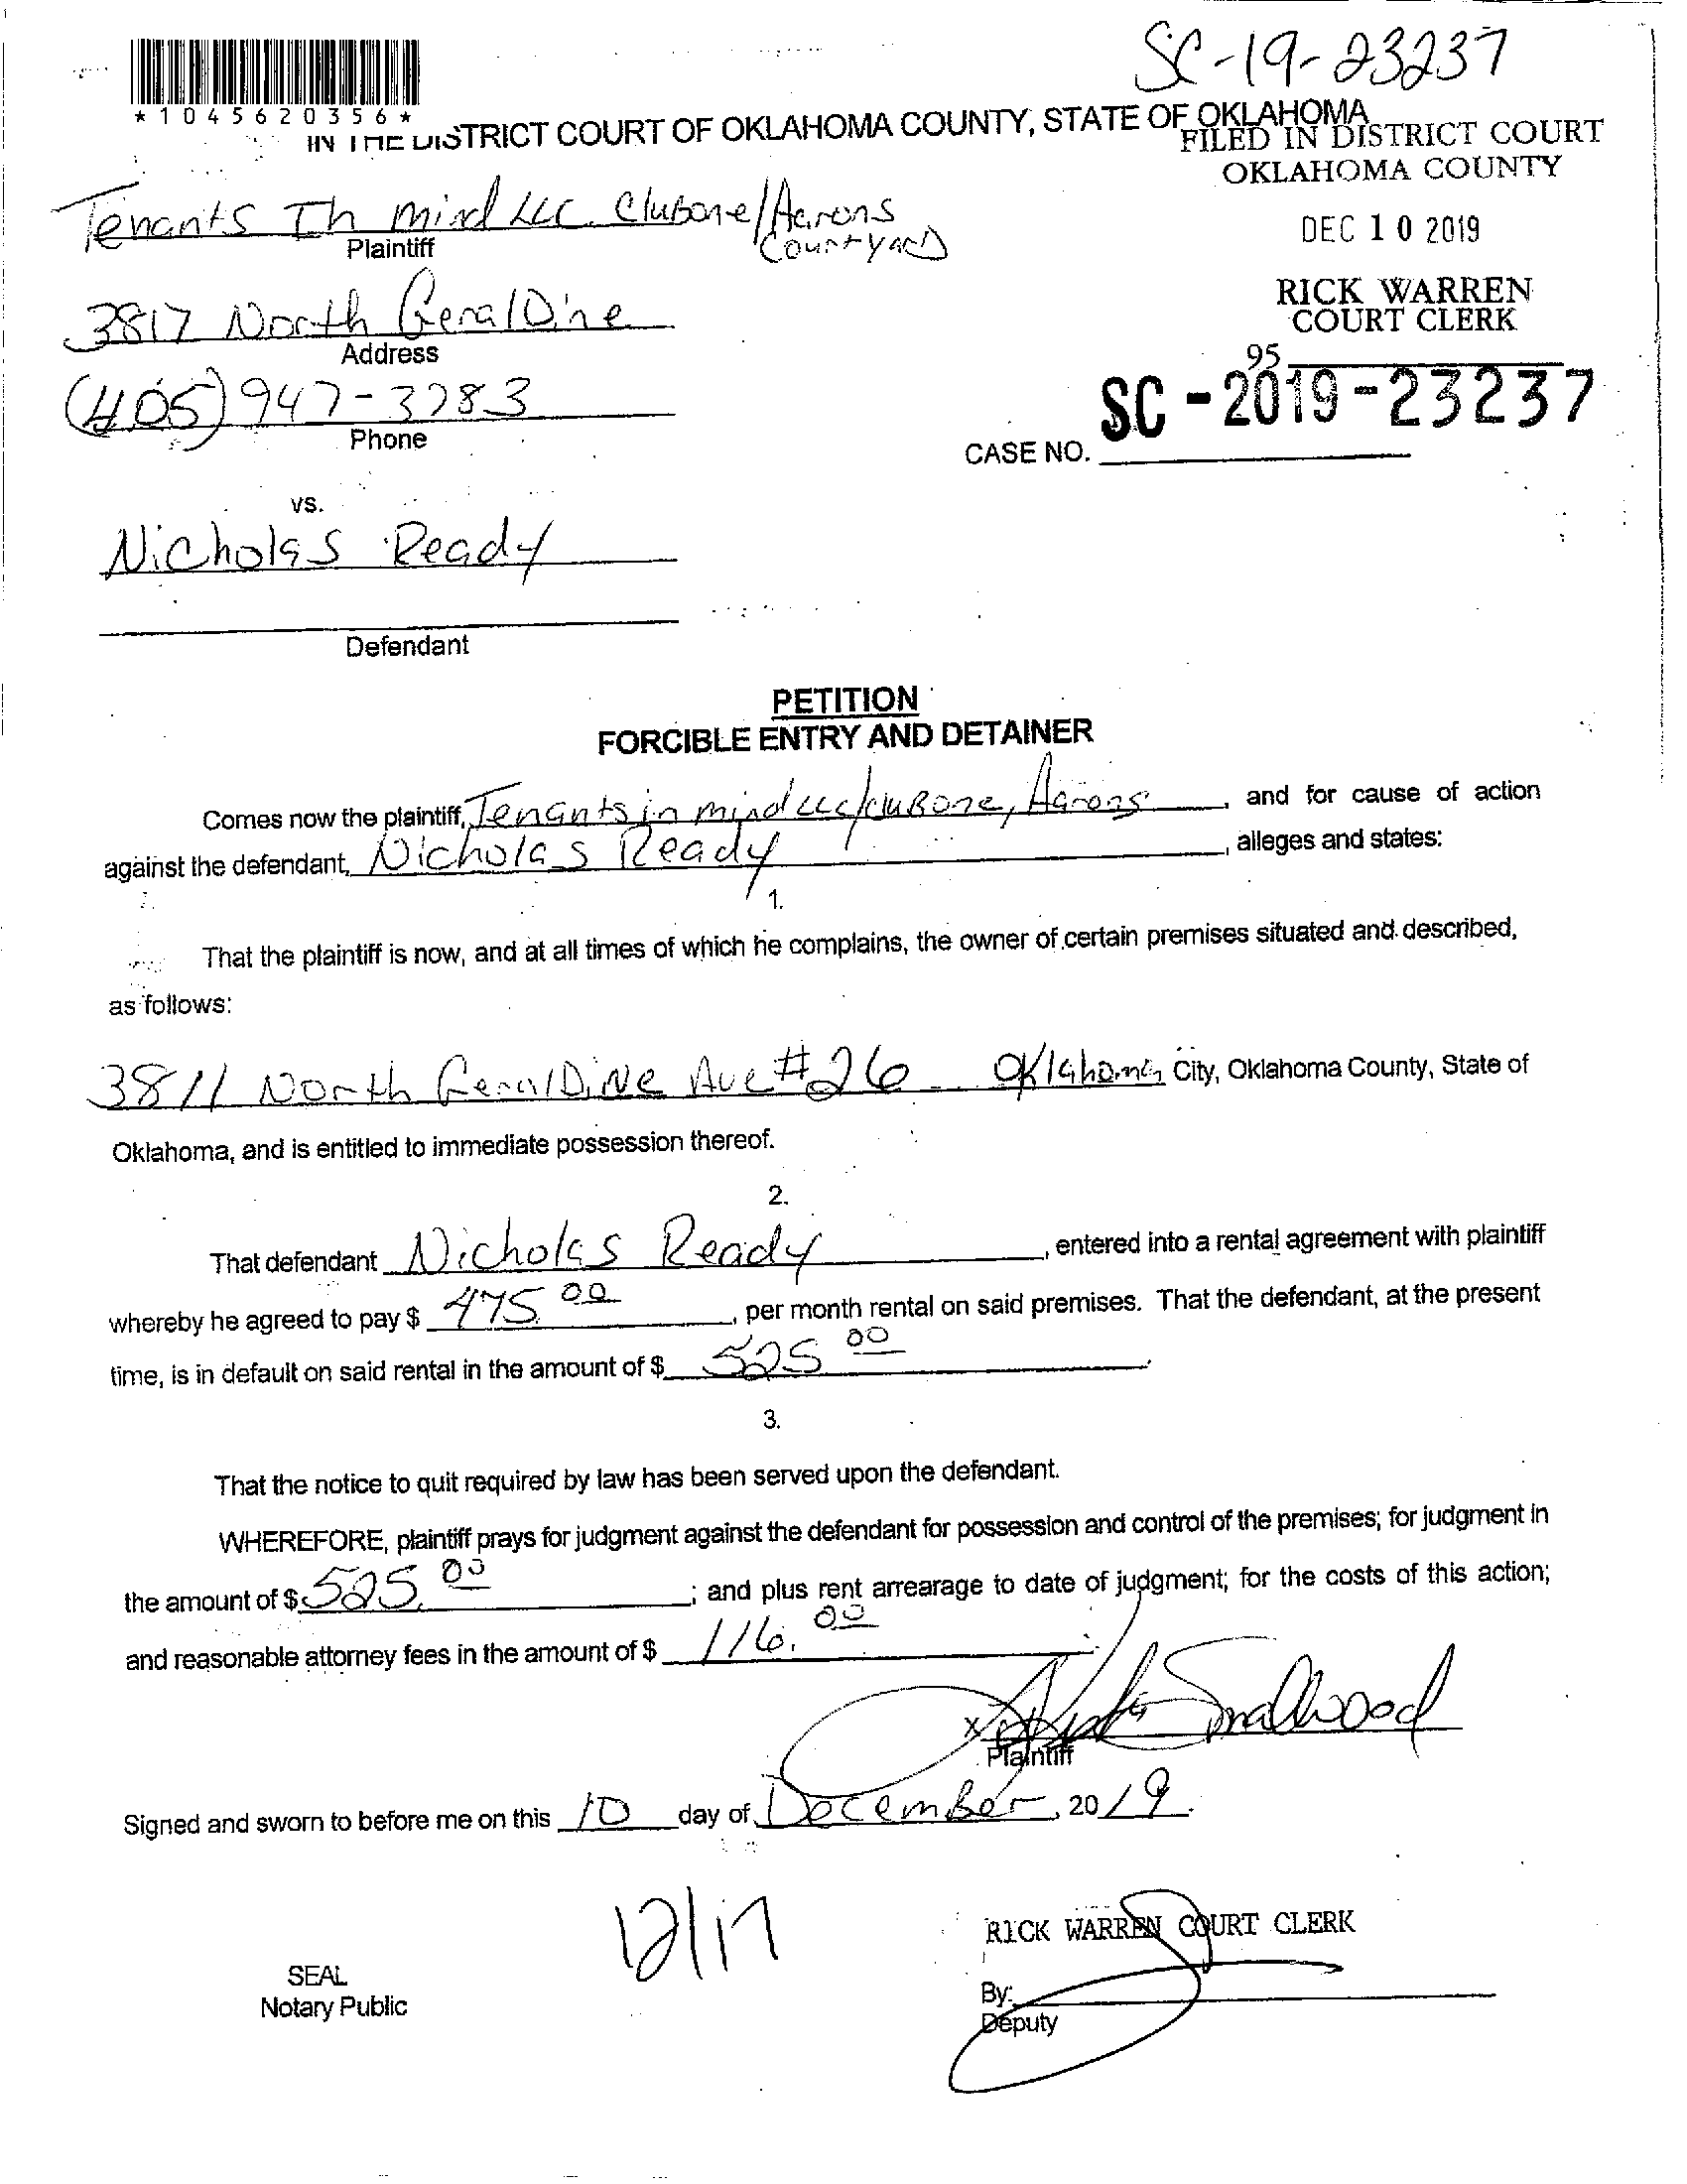 SC-19-23237
*1045620356*
IN THE DISTRICT COURT OF OKLAHOMA COUNTY, STATE OF OKLAHOMA
FILED IN DISTRICT COURT
OKLAHOMA COUNTY
Tenants In mind LLC. Clubone/Aarons
Courtyard
Plaintiff
DEC 10 2019
3817 North GeralDine
Address
RICK WARREN
COURT CLERK
95
(405) 947-3783
Phone
SC-2019-23237
CASE NO.
vs.
Nicholas Ready
Defendant
PETITION
FORCIBLE ENTRY AND DETAINER
Comes now the plaintiff, Tenants in mind LLC/cluBone, Aarons, and for cause of action
against the defendant, Nicholas Ready, alleges and states:
1.
That the plaintiff is now, and at all times of which he complains, the owner of certain premises situated and described,
as follows:
3811 North GeralDiNe Ave #26 Oklahoma City, Oklahoma County, State of
Oklahoma, and is entitled to immediate possession thereof.
2.
That defendant Nicholas Ready, entered into a rental agreement with plaintiff
whereby he agreed to pay $ 475.00, per month rental on said premises. That the defendant, at the present
time, is in default on said rental in the amount of $ 525 00.
3.
That the notice to quit required by law has been served upon the defendant.
WHEREFORE, plaintiff prays for judgment against the defendant for possession and control of the premises; for judgment in
the amount of $ 525.00; and plus rent arrearage to date of judgment; for the costs of this action;
and reasonable attorney fees in the amount of $ 116.00.
X Smallwood
Plaintiff
Signed and sworn to before me on this 10 day of DecemBer, 2019.
12/17
RICK WARREN COURT CLERK
SEAL
Notary Public
By:
Deputy